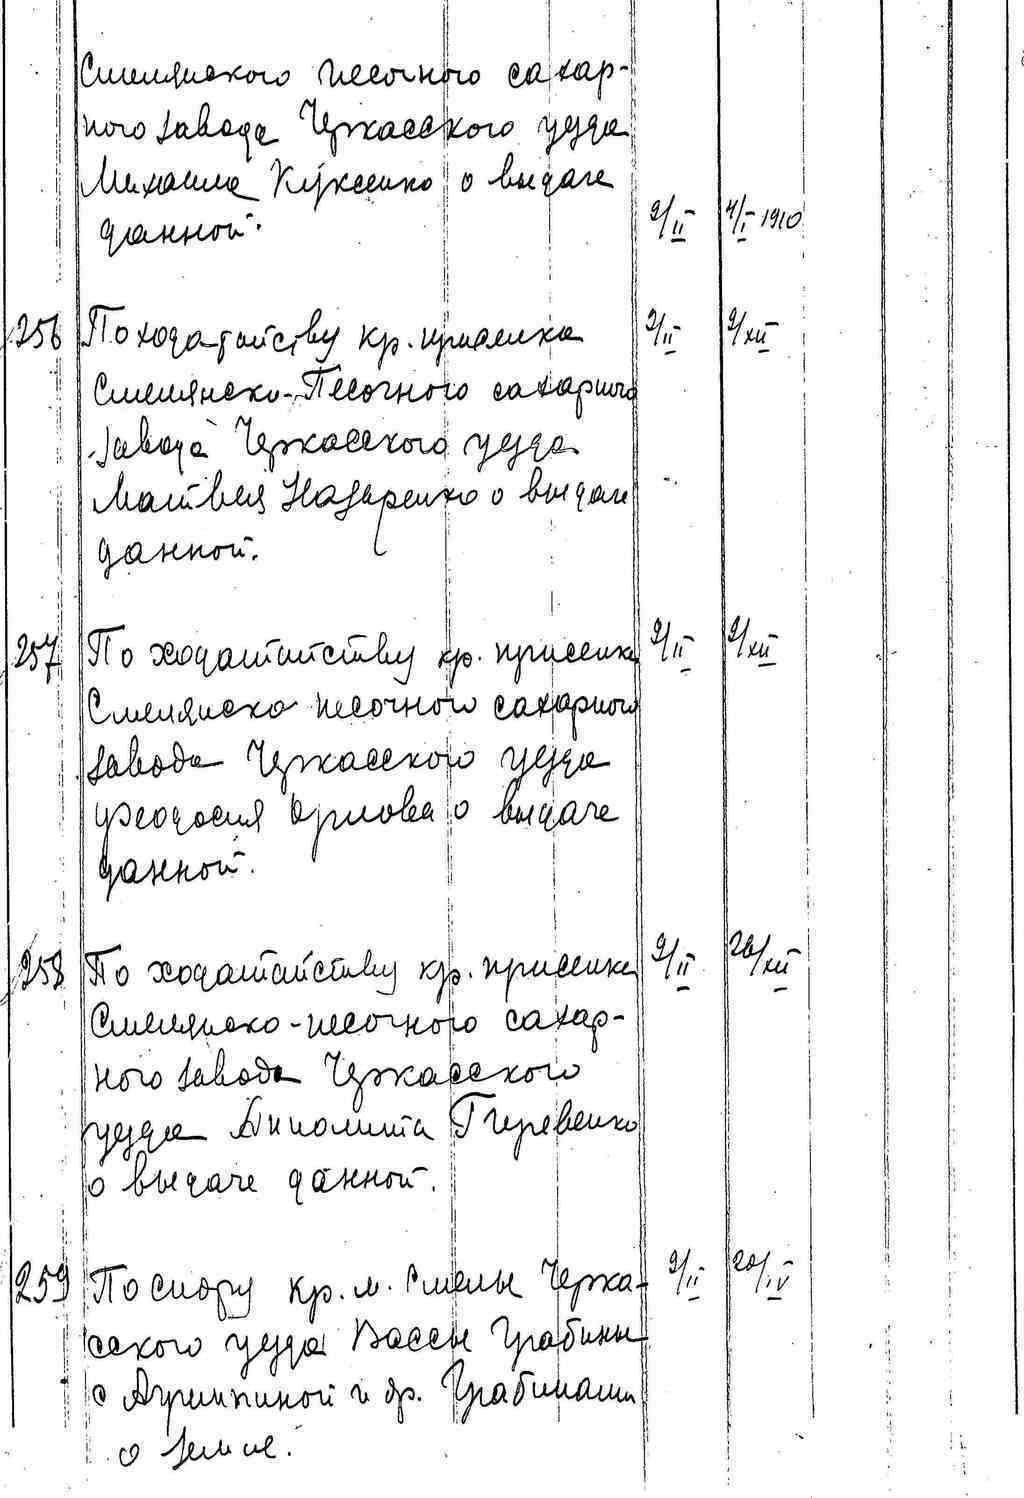 Смелянского песочного сахар-
ного завода Черкасского уезда
Михаила Куксенко о выдаче
данной. 9/II 4/I 1910
256 По ходатайству кр. приселка 9/II 9/XII
Смелянско-Песочного сахарного
завода Черкасского уезда
Матвея Назаренко о выдаче
данной.
257 По ходатайству кр. приселка 9/II 9/XII
Смелянско песочного сахарного
завода Черкасского уезда
Феодосия Орлова о выдаче
данной.
258 По ходатайству кр. приселка 9/II 20/XII
Смелянско-песочного сахар-
ного завода Черкасского
уезда Ипполита
о выдаче данной.
259 По спору кр. м. Смелы Черка- 9/II 20/IV
сского уезда Вассы Грабины
с Агрипиной и др. Грабинами
о земле.